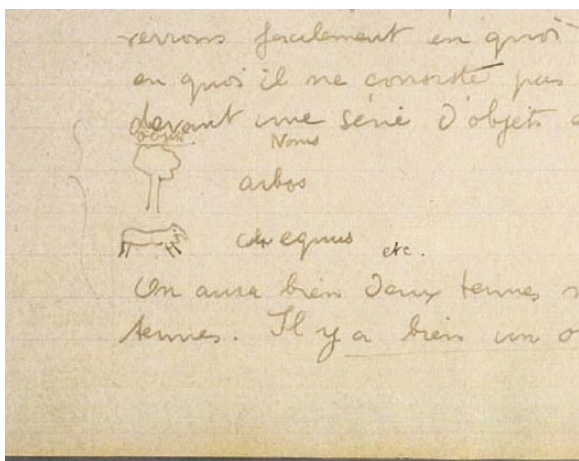 verrons facilement en quoi
en quoi il ne consiste pas
devant une série d'objets
objets
Noms
arbos
equus etc.
On aura bien deux termes
termes. Il y a bien un o